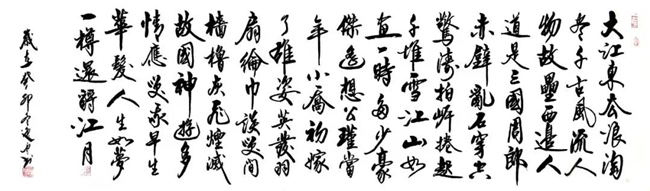 大江東去浪淘
盡千古風流人
物故壘西邊人
道是三國周郎
赤壁亂石穿空
驚濤拍岸捲起
千堆雪江山如
畫一時多少豪
傑遙想公瑾當
年小喬初嫁
了雄姿英發羽
扇綸巾談笑間
檣櫓灰飛煙滅
故國神遊多
情應笑我早生
華髮人生如夢
一樽還酹江月
歲在癸卯冬